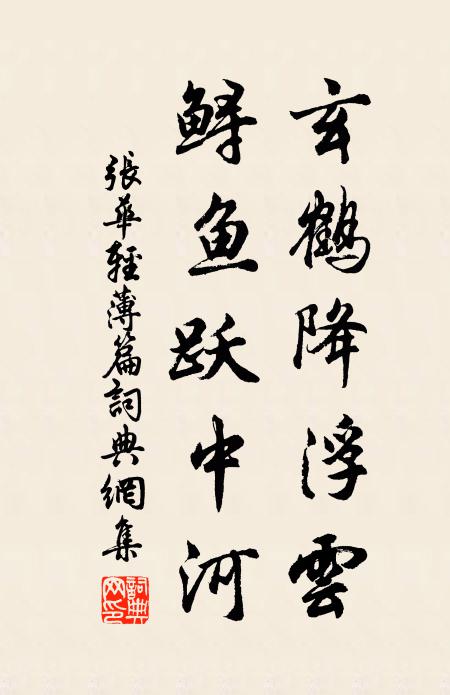 玄鶴降浮雲
鲟鱼跃中河
張華輕薄篇詞典網集
詞典网印